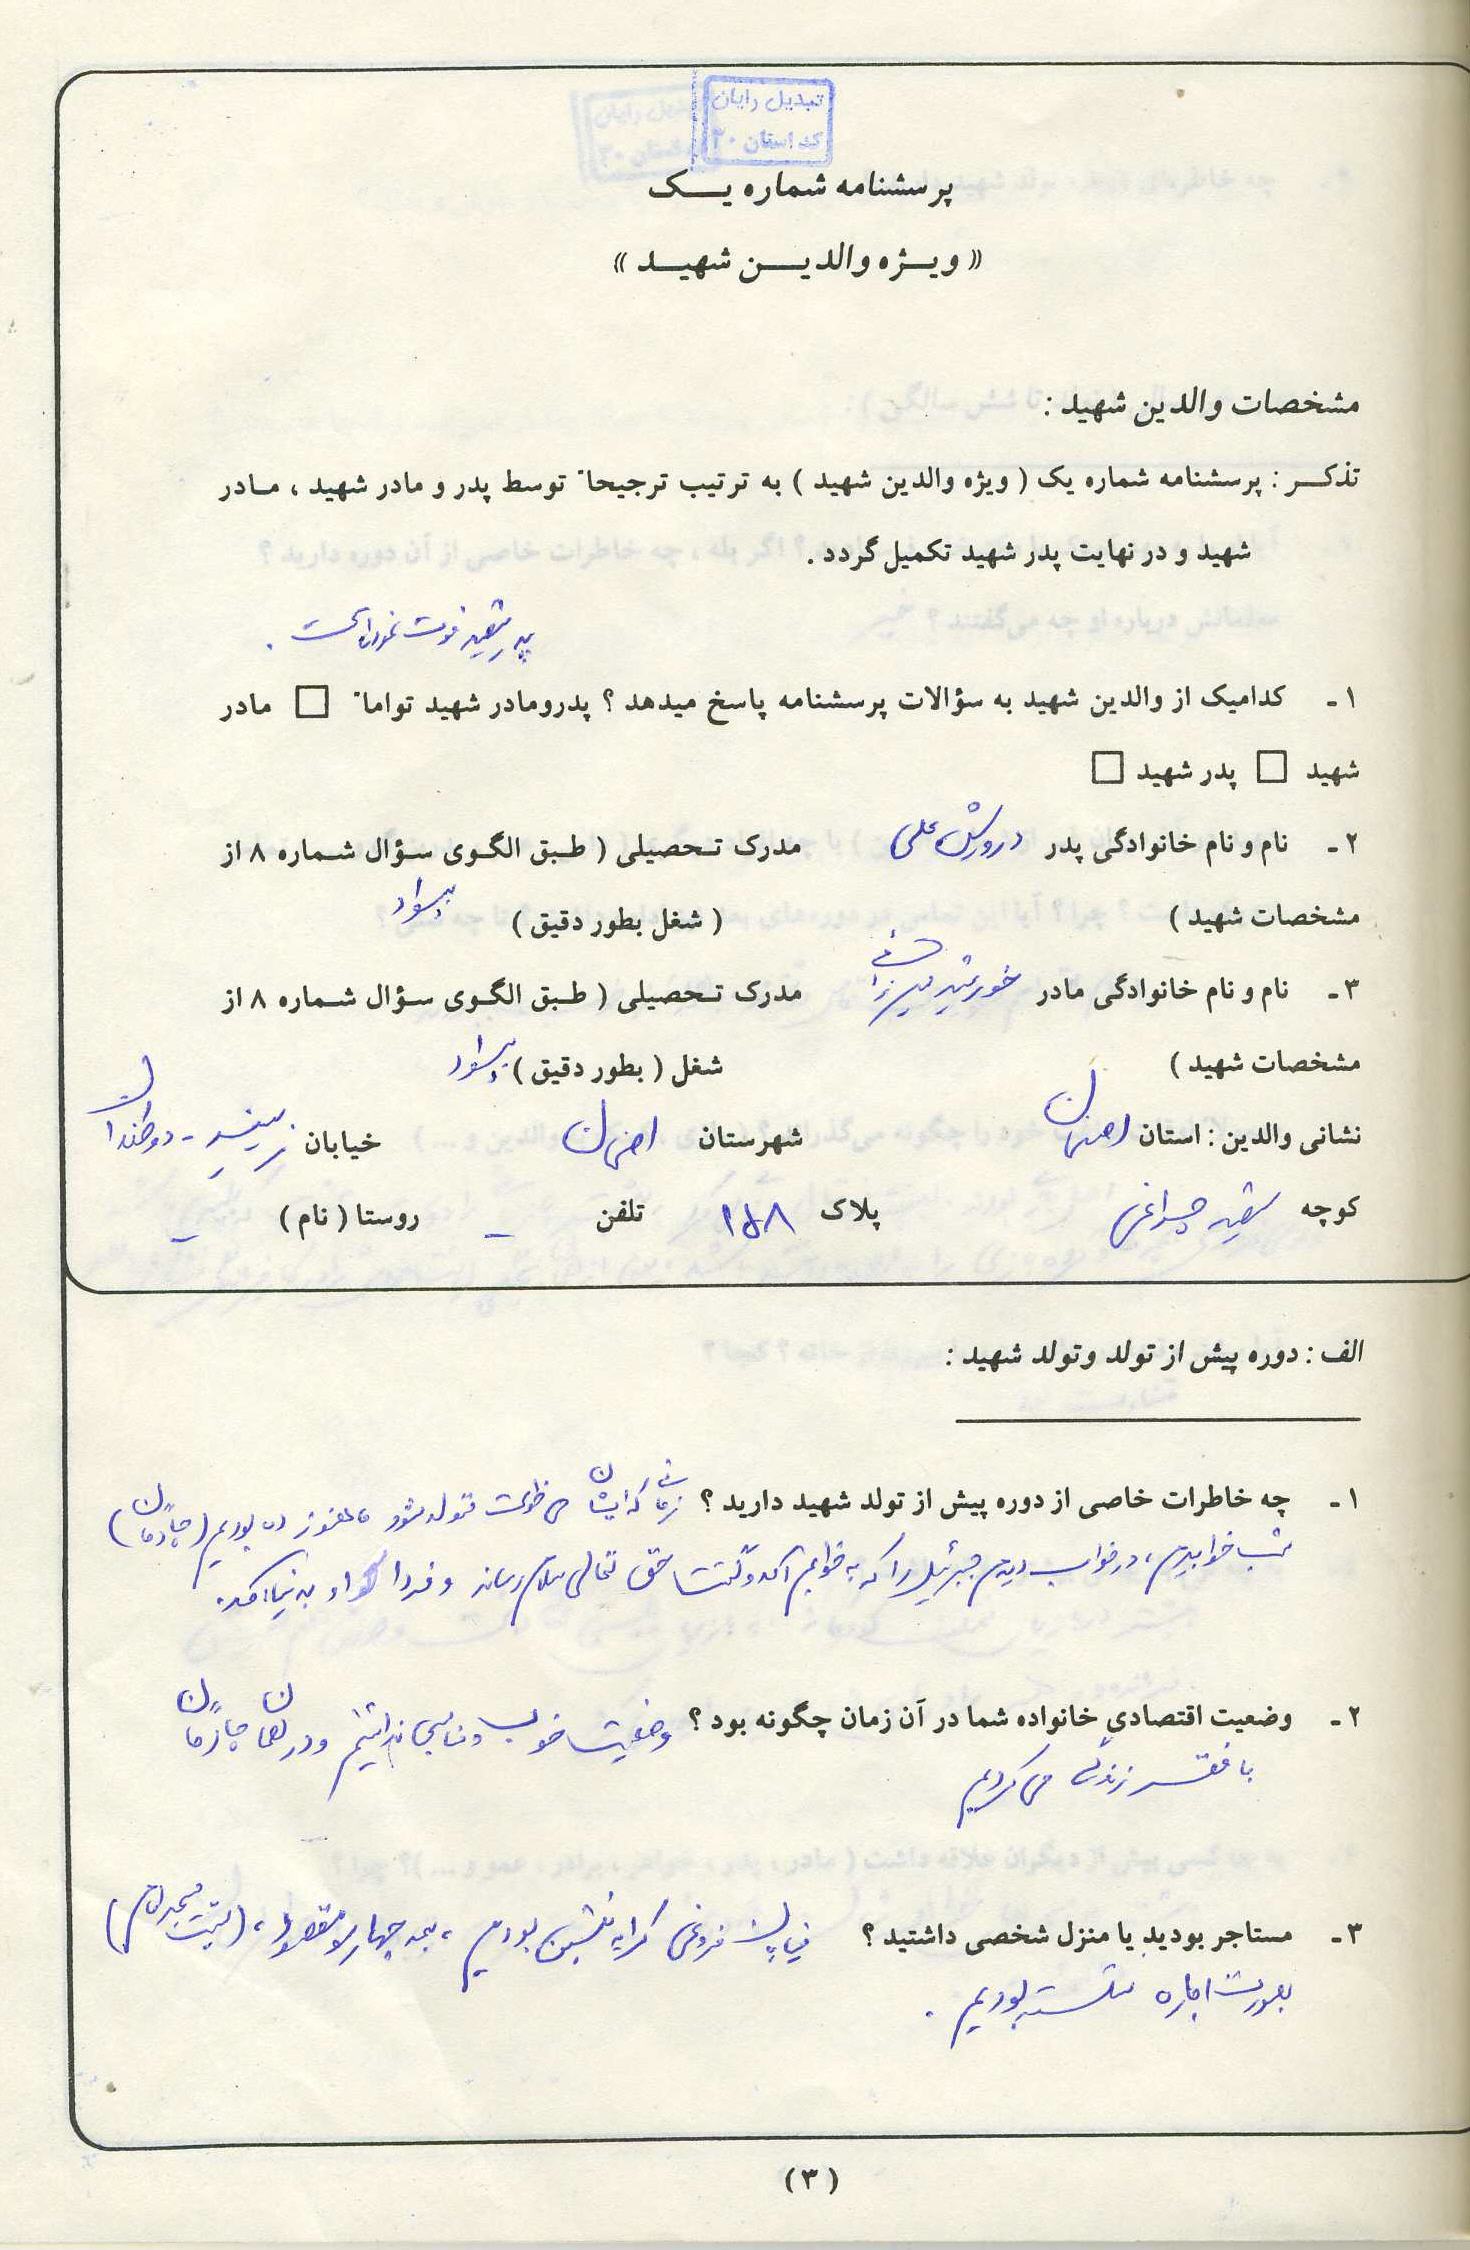 تبدیل رایان
کد استان ۲۰
پرسشنامه شماره یک
« ویژه والدین شهید »
مشخصات والدین شهید :
تذکر : پرسشنامه شماره یک ( ویژه والدین شهید ) به ترتیب ترجیحاً توسط پدر و مادر شهید ، مادر
شهید و در نهایت پدر شهید تکمیل گردد .
پدر شهید فوت نموده است .
۱ - کدامیک از والدین شهید به سؤالات پرسشنامه پاسخ میدهد ؟ پدرومادر شهید تواماً □ مادر
شهید □ پدر شهید □
۲ - نام و نام خانوادگی پدر درویش علی مدرک تحصیلی ( طبق الگوی سؤال شماره ۸ از
مشخصات شهید ) ( شغل بطور دقیق ) بیسواد
۳ - نام و نام خانوادگی مادر خورشید مدرک تحصیلی ( طبق الگوی سؤال شماره ۸ از
مشخصات شهید ) شغل ( بطور دقیق ) بیسواد
نشانی والدین : استان اصفهان شهرستان اصفهان خیابان زینبیه -
کوچه شهید چراغی پلاک ۱۵۸ تلفن - روستا ( نام ) -
الف : دوره پیش از تولد وتولد شهید :
۱ - چه خاطرات خاصی از دوره پیش از تولد شهید دارید ؟ زمانی که ایشان می خواست متولد شود ما هنوز ده بودیم (چادگان)
شب خوابیدم ، در خواب دیدم جبرئیل را که به خوابم آمد و گفت حق تعالی سلام رساند و فردا به دنیا آمد .
۲ - وضعیت اقتصادی خانواده شما در آن زمان چگونه بود ؟ وضعیت خوب و مناسبی نداشتیم و در همان چادگان
با فقر زندگی می کردیم
۳ - مستاجر بودید یا منزل شخصی داشتید ؟ خیابان فروغی کرایه نشین بودیم ، بعد چهارسو مقصود ، (پشت مسجد امام)
بصورت اجاره نشسته بودیم .
( ۳ )